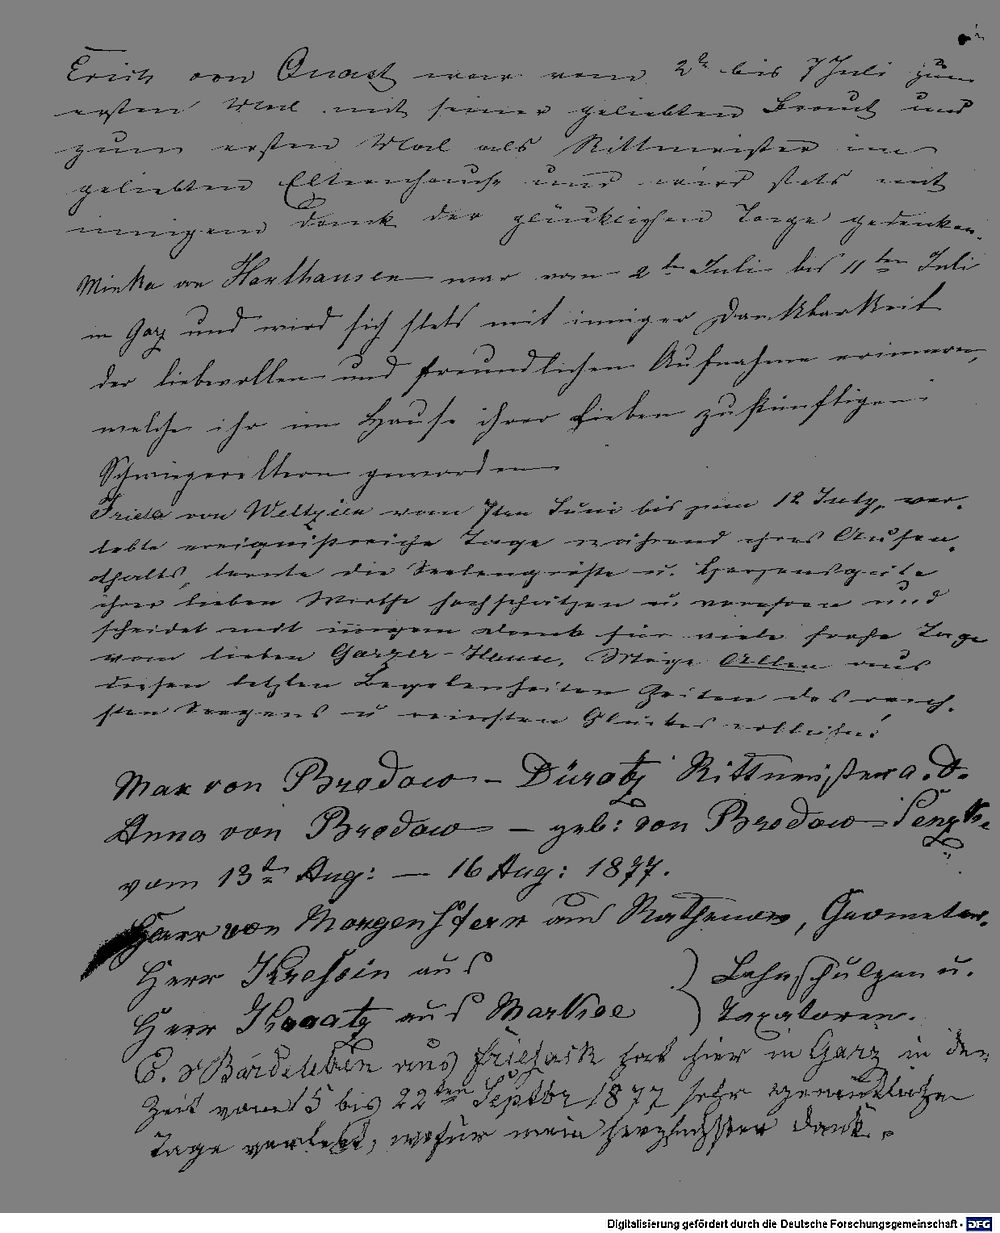 Erich von Quast war vom 2ten bis 7 Juli zum
ersten Mal mit seiner geliebten Braut und
zum ersten Mal als Rittmeister im
geliebten Elternhause und wird stets mit
innigem Dank der glücklichen Tage gedenken.
Minka von Haxthausen war vom 2ten Juli bis 11ten Juli
in Garz und wird sich stets mit inniger Dankbarkeit
der liebevollen und freundlichen Aufnahme erinnern,
welche ihr im Hause ihrer lieben zukünftigen
Schwiegereltern geworden
Frieda von Weltzien vom 7ten Juni bis zum 12 July, ver-
lebte ereignißreiche Tage während ihres Aufen-
thalts, lernte die Seelengröße u. Herzensgüte
ihrer lieben Wirthe hochschätzen u. verehren und
scheidet mit innigem Dank für viele frohe Tage
vom lieben Garzer-Hause. Möge Allen aus
diesen letzten Begebenheiten Zeiten des reich-
sten Seegens u reinsten Glückes erblühen!
Max von Bredow - Rittmeister a. D.
Anna von Bredow - geb: von Bredow
vom 13ten Aug: - 16 Aug: 1877.
Herr von Morgenstern aus Rathenow, Geometer.
Herr aus } Lehnschulzen u.
Herr Kraatz aus Markee } Taxatoren.
E. v Bardeleben aus Friesack hat hier in Garz in der
Zeit vom 15 bis 22ten Septbr 1877 sehr gemüthliche
Tage verlebt, wofür mein herzlichster Dank.
Digitalisierung gefördert durch die Deutsche Forschungsgemeinschaft - DFG